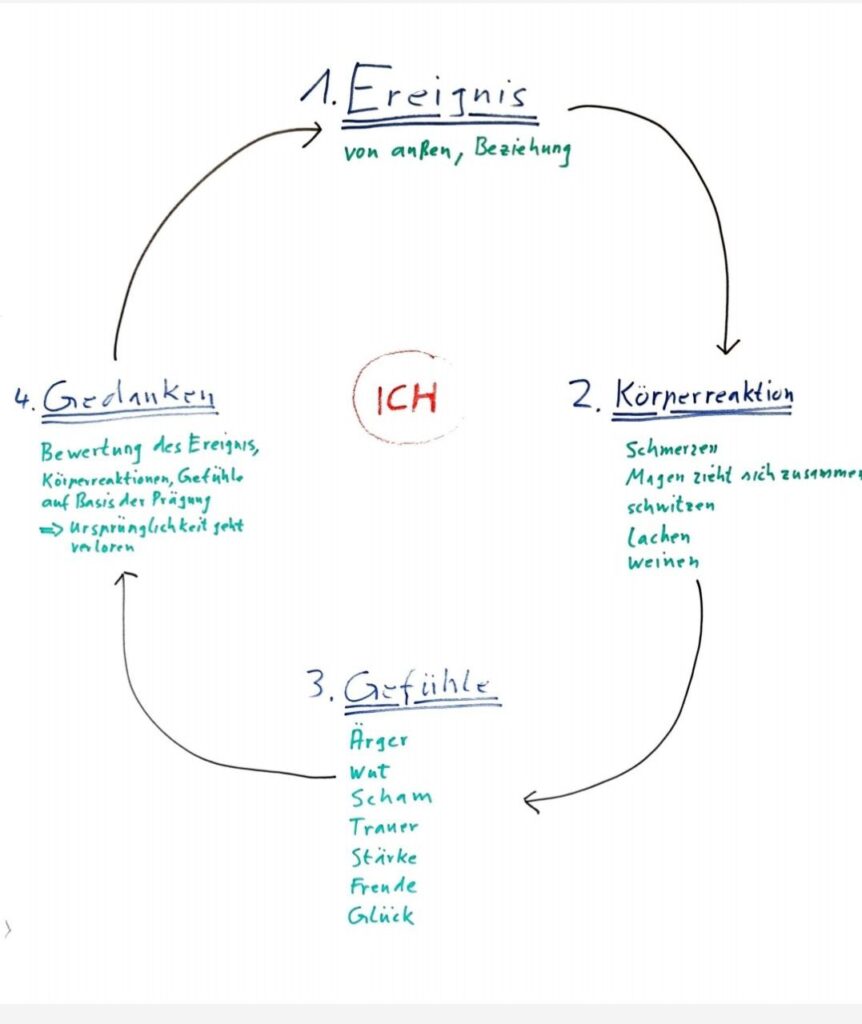 1. Ereignis
von außen, Beziehung
ICH
2. Körperreaktion
Schmerzen
Magen zieht sich zusammen
schwitzen
Lachen
weinen
3. Gefühle
Ärger
Wut
Scham
Trauer
Stärke
Freude
Glück
4. Gedanken
Bewertung des Ereignis,
Körperreaktionen, Gefühle
auf Basis der Prägung
=> Ursprünglichkeit geht
verloren